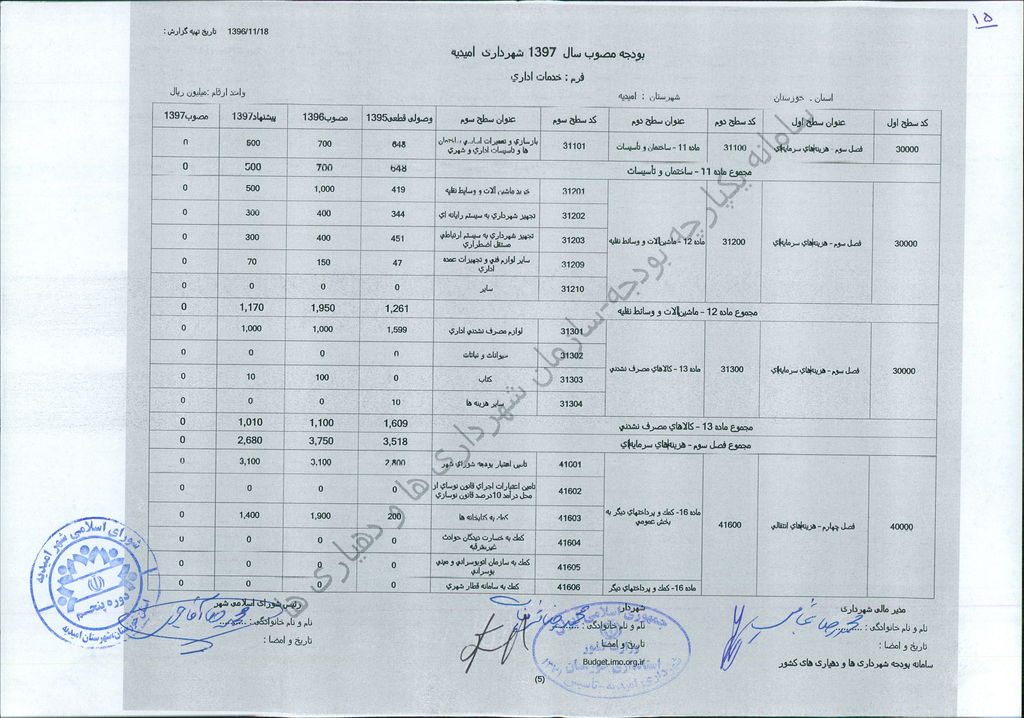 ۱۵
تاریخ تهیه گزارش : 1396/11/18
بودجه مصوب سال 1397 شهرداری امیدیه
فرم : خدمات اداري
استان . خوزستان شهرستان : امیدیه واحد ارقام :میلیون ریال
کد سطح اول عنوان سطح اول کد سطح دوم عنوان سطح دوم کد سطح سوم عنوان سطح سوم وصولی قطعی1395 مصوب1396 پیشنهاد1397 مصوب1397
30000 فصل سوم - هزینه‌هاي سرمایه‌اي 31100 ماده 11 - ساختمان و تأسیسات 31101 بازسازي و تعمیرات اساسي ساختمان ها و تاسیسات اداري و شهري 648 700 500 0
مجموع ماده 11 - ساختمان و تأسیسات 648 700 500 0
30000 فصل سوم - هزینه‌هاي سرمایه‌اي 31200 ماده 12 - ماشین‌آلات و وسائط نقلیه 31201 خرید ماشین آلات و وسایط نقلیه 419 1,000 500 0
31202 تجهیز شهرداري به سیستم رایانه اي 344 400 300 0
31203 تجهیز شهرداري به سیستم ارتباطي مستقل اضطراري 451 400 300 0
31209 سایر لوازم فني و تجهیزات عمده اداري 47 150 70 0
31210 سایر 0 0 0 0
مجموع ماده 12 - ماشین‌آلات و وسائط نقلیه 1,261 1,950 1,170 0
30000 فصل سوم - هزینه‌هاي سرمایه‌اي 31300 ماده 13 - کالاهاي مصرف نشدني 31301 لوازم مصرف نشدني اداري 1,599 1,000 1,000 0
31302 حیوانات و نباتات 0 0 0 0
31303 کتاب 0 100 10 0
31304 سایر هزینه ها 10 0 0 0
مجموع ماده 13 - کالاهاي مصرف نشدني 1,609 1,100 1,010 0
مجموع فصل سوم - هزینه‌هاي سرمایه‌اي 3,518 3,750 2,680 0
40000 فصل چهارم - هزینه‌هاي انتقالي 41600 ماده 16- کمك و پرداختهاي دیگر به بخش عمومي 41601 تامین اعتبار بودجه شوراي شهر 2,800 3,100 3,100 0
41602 تامین اعتبارات اجراي قانون نوسازي از محل درآمد 10درصد قانون نوسازي 0 0 0 0
41603 کمك به کتابخانه ها 200 1,900 1,400 0
41604 کمك به خسارت دیدگان حوادث غیرمترقبه 0 0 0 0
41605 کمك به سازمان اتوبوسراني و میني بوسراني 0 0 0 0
ماده 16- کمك و پرداختهاي دیگر 41606 کمك به سامانه قطار شهري 0 0 0 0
سامانه یکپارچه بودجه-سازمان شهرداری ها و دهیاری ها
مدیر مالی شهرداری شهردار رئیس شورای اسلامی شهر
نام و نام خانوادگی : نام و نام خانوادگی : نام و نام خانوادگی :
تاریخ و امضا : تاریخ و امضا : تاریخ و امضا :
سامانه بودجه شهرداری ها و دهیاری های کشور Budget.imo.org.ir
(5)
شورای اسلامی شهر امیدیه
دوره پنجم
شهرستان امیدیه
جمهوری اسلامی
وزارت کشور
استانداری خوزستان
شهرداری امیدیه - تاسیس